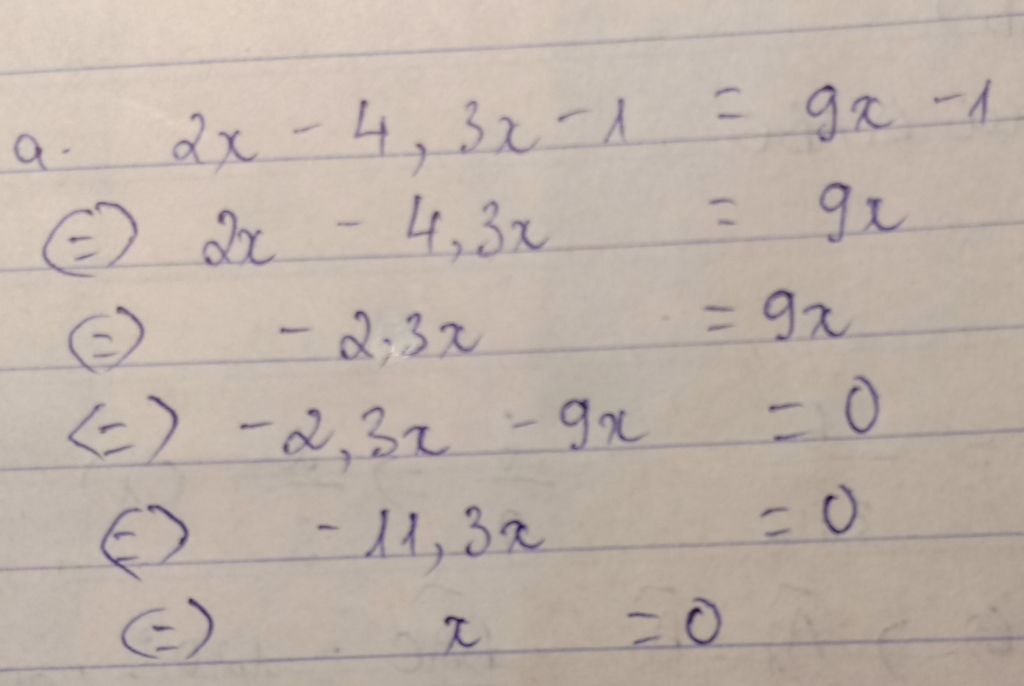 a. 2x - 4,3x - 1 = 9x - 1
(=) 2x - 4,3x = 9x
(=) - 2,3x = 9x
(=) - 2,3x - 9x = 0
(=) - 11,3x = 0
(=) x = 0